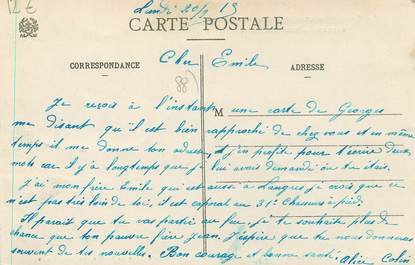 12 €
Lundi 20/9 15
CARTE POSTALE
Cher Emile
CORRESPONDANCE
ADRESSE
(88)
Je reçois à l'instant M une carte de Georges
me disant qu'il est bien rapproché de chez vous et en même
temps il me donne ton adresse, et j'en profite pour t'écrire deux
mots car il y a longtemps que je lui avais demandé où tu étais.
j'ai mon frère Emile qui est aussi à Langres je crois que ce
n'est pas très loin de toi, il est caporal au 31e Chasseurs à pied.
Il parait que tu vas partir au feu, je te souhaite plus de
chance que ton pauvre frère Jean. J'espère que tu nous donneras
souvent de tes nouvelles. Bon courage et bonne santé.
Alice Colin